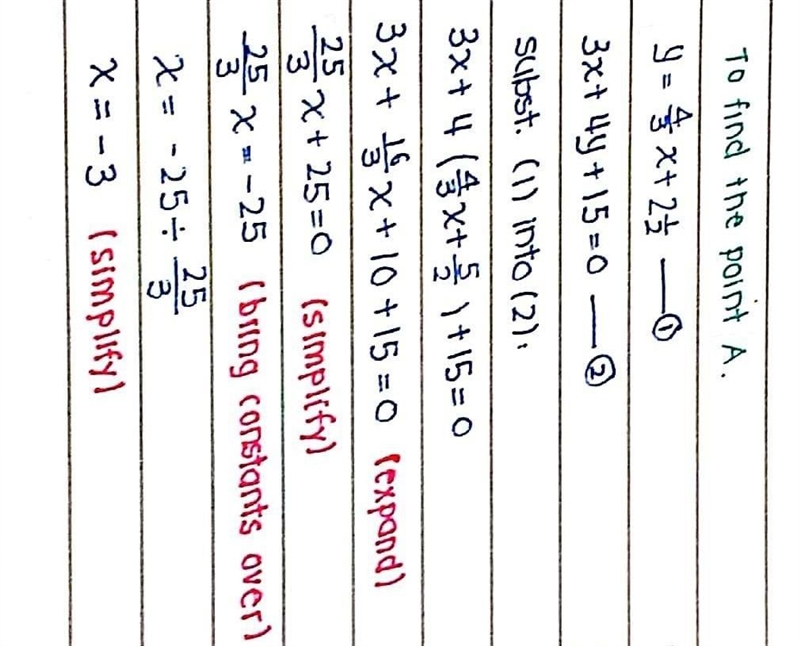 To find the point A.
y = 4/3 x + 2 1/2 — ①
3x + 4y + 15 = 0 — ②
subst. (1) into (2):
3x + 4 (4/3 x + 5/2) + 15 = 0
3x + 16/3 x + 10 + 15 = 0 (expand)
25/3 x + 25 = 0 (simplify)
25/3 x = -25 (bring constants over)
x = -25 ÷ 25/3
x = -3 (simplify)